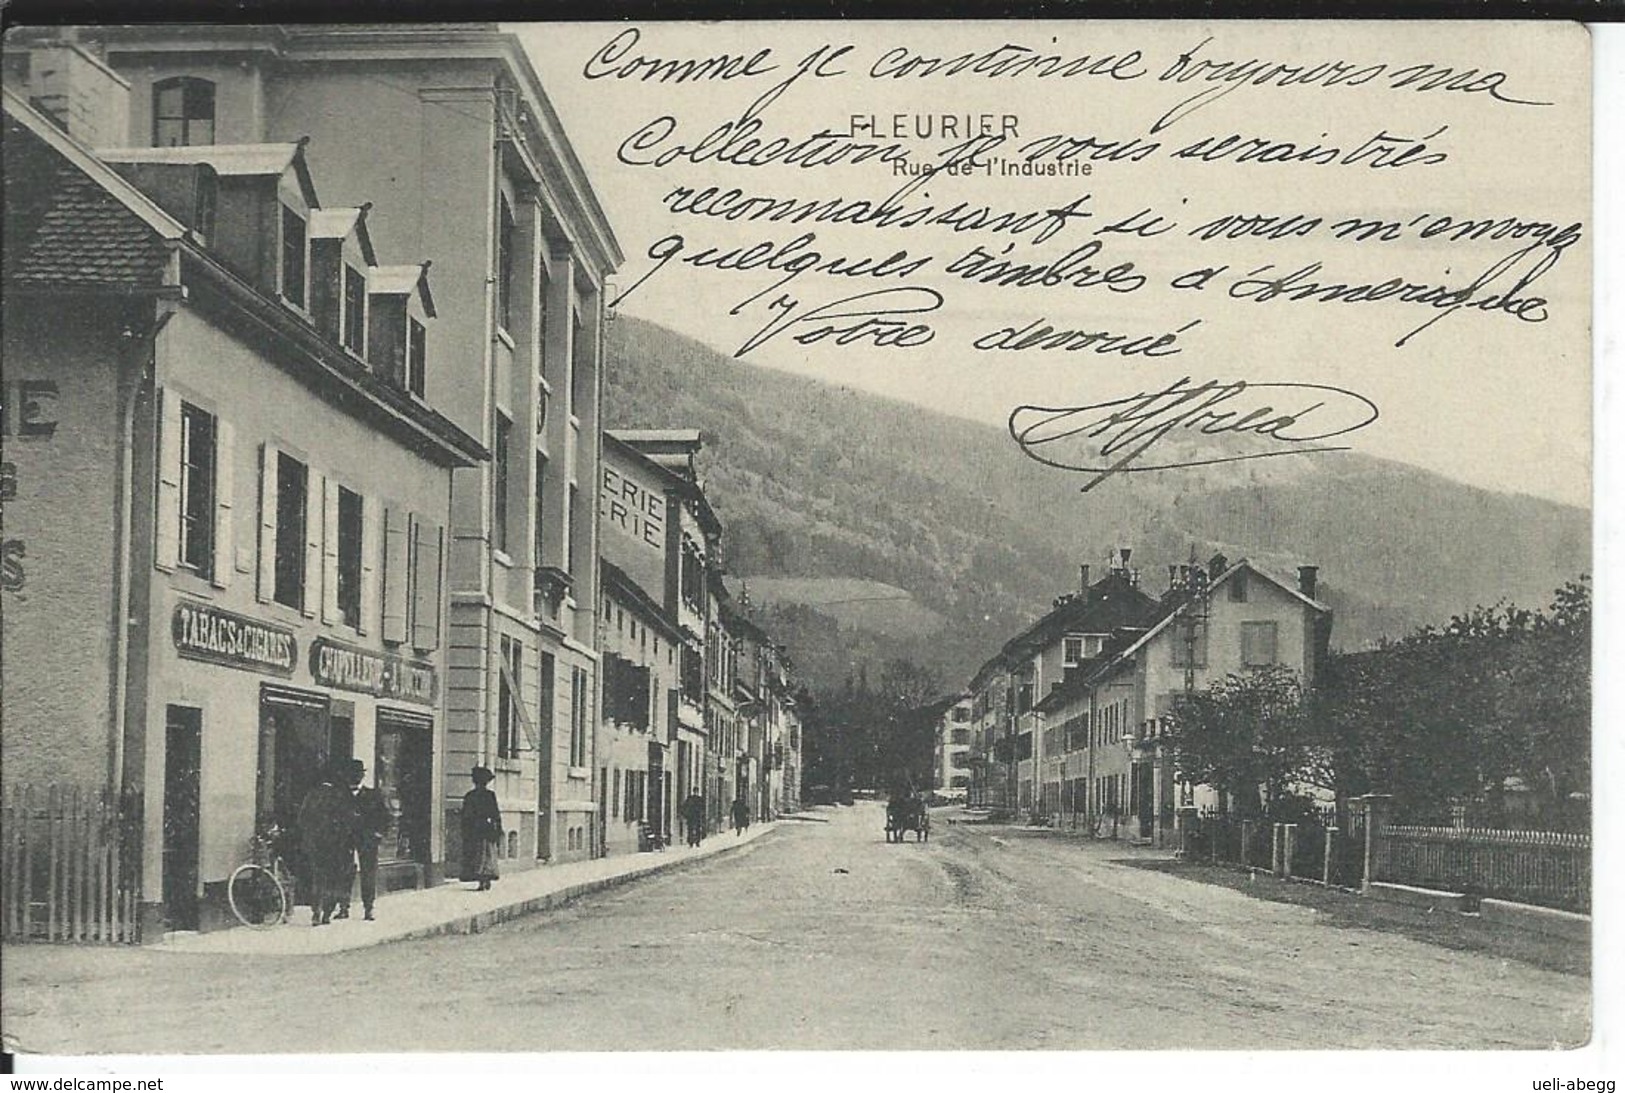 Comme je continue toujours ma
Collection je vous serais très
reconnaissant si vous m'envoyez
quelques timbres d'Amerique
Votre devoué
Alfred
FLEURIER
Rue de l'Industrie
IE
S
ERIE
ERIE
TABACS & CIGARES
CHAPELLERIE
www.delcampe.net
ueli-abegg